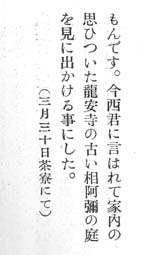 もんです。今西君に言はれて家内の
思ひついた龍安寺の古い相阿彌の庭
を見に出かける事にした。
（三月三十日茶寮にて）